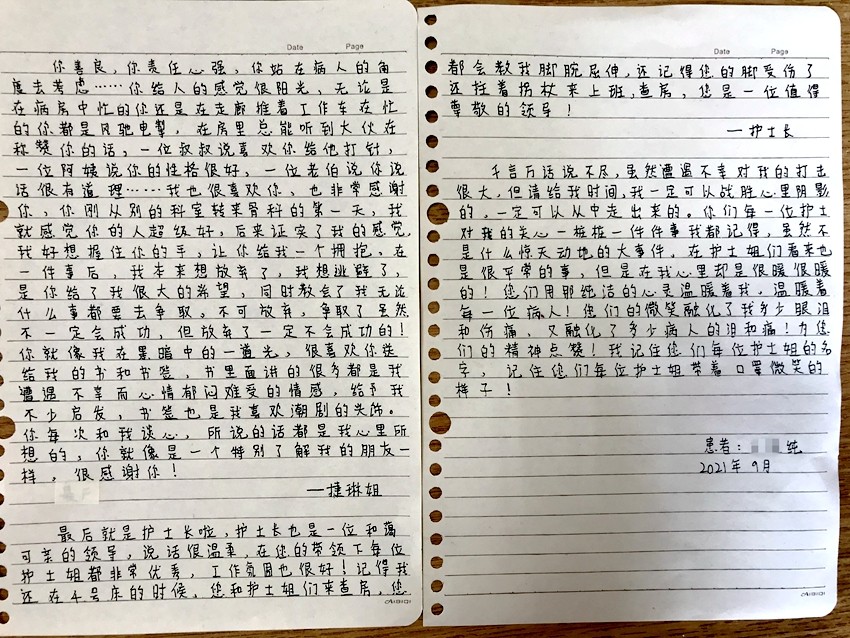 Date Page
你善良，你责任心强，你站在病人的角
度去考虑……你给人的感觉很阳光，无论是
在病房中忙的你还是在走廊推着工作车在忙
的你都是风驰电掣，在房里总能听到大伙在
称赞你的话，一位叔叔说喜欢你给他打针，
一位阿姨说你的性格很好，一位老伯说你说
话很有道理……我也很喜欢你，也非常感谢
你，你刚从别的科室转来骨科的第一天，我
就感觉你的人超级好，后来证实了我的感觉，
我好想握住你的手，让你给我一个拥抱，在
一件事后，我本来想放弃了，我想逃避了，
是你给了我很大的希望，同时教会了我无论
什么事都要去争取，不可放弃，争取了虽然
不一定会成功，但放弃了一定不会成功的！
你就像我在黑暗中的一道光，很喜欢你送
给我的书和书签，书里面讲的很多都是我
遭遇不幸而心情郁闷难受的情感，给予我
不少启发，书签也是我喜欢潮剧的头饰。
你每次和我谈心，所说的话都是我心里所
想的，你就像是一个特别了解我的朋友一
样，很感谢你！
—捷琳姐
最后就是护士长啦，护士长也是一位和蔼
可亲的领导，说话很温柔，在您的带领下每位
护士姐都非常优秀，工作氛围也很好！记得我
还在4号床的时候，您和护士姐们来查房，您
Date Page
都会教我脚腕屈伸，还记得您的脚受伤了
还拄着拐杖来上班，查房，您是一位值得
尊敬的领导！
—护士长
千言万语说不尽，虽然遭遇不幸对我的打击
很大，但请给我时间，我一定可以战胜心里阴影
的，一定可以从中走出来的。你们每一位护士
对我的关心一桩桩一件件事我都记得，虽然不
是什么惊天动地的大事件，在护士姐们看来也
是很平常的事，但是在我心里却是很暖很暖
的！您们用那纯洁的心灵温暖着我，温暖着
每一位病人！您们的微笑融化了我多少眼泪
和伤痛，又融化了多少病人的泪和痛！为您
们的精神点赞！我记住您们每位护士姐的名
字，记住您们每位护士姐带着口罩微笑的
样子！
患者：纯
2021年9月